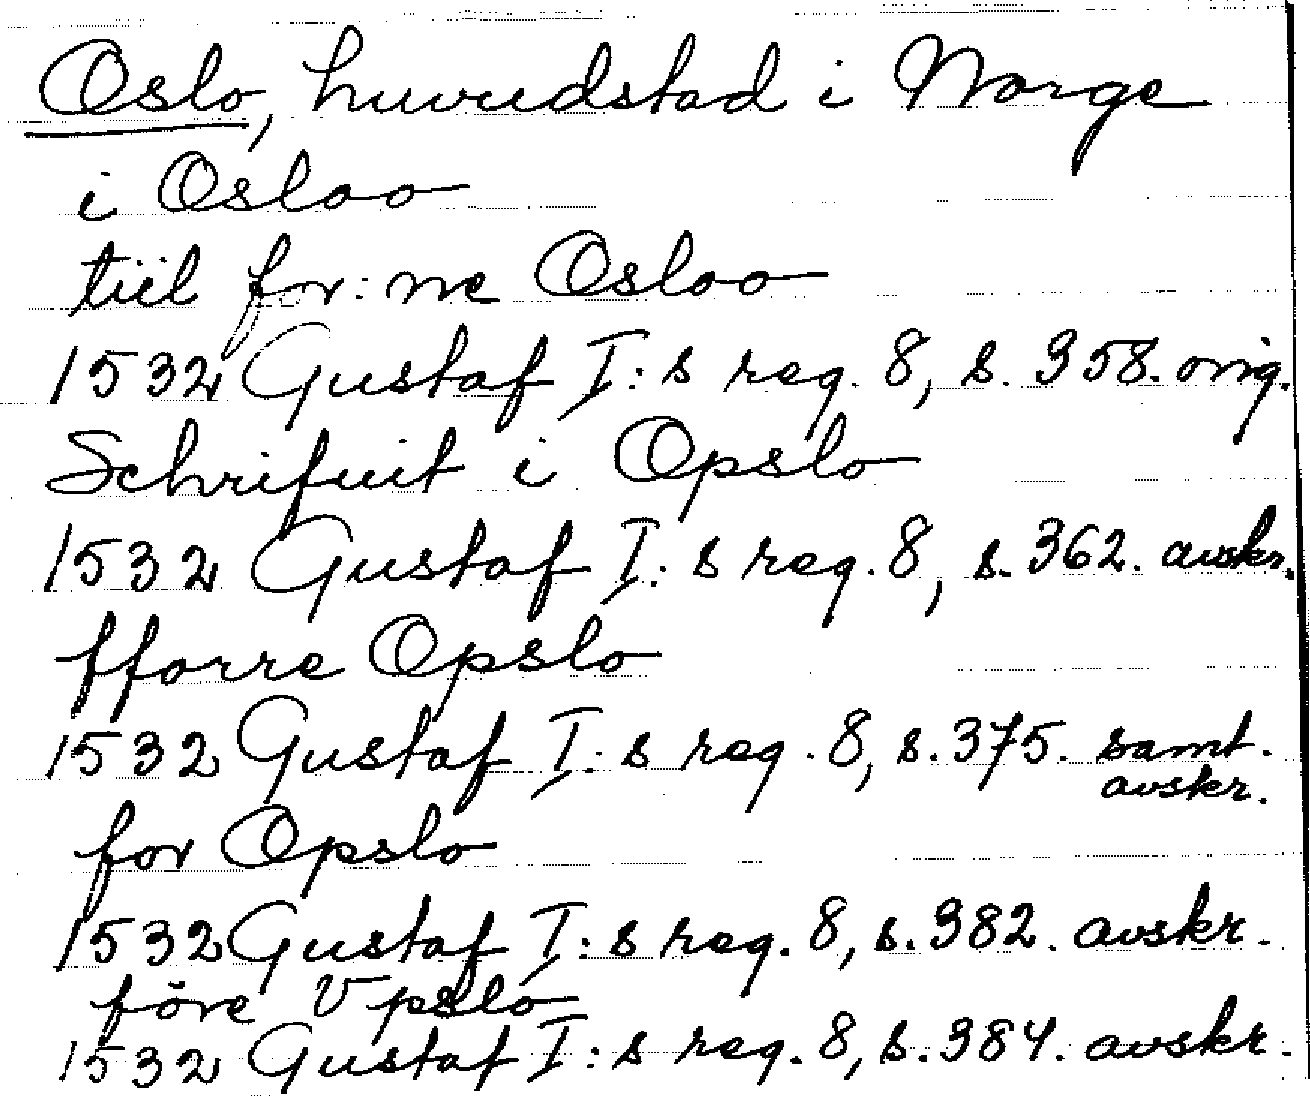 Oslo, huvudstad i Norge
i Osloo
tiil for: ne Osloo
1532 Gustaf I: s reg. 8, s. 358. orig.
Schrifuit i Opslo
1532 Gustaf I: s reg. 8, s. 362. avskr.
fforre Opslo
1532 Gustaf I: s reg. 8, s. 375. samt. avskr.
for Opslo
1532 Gustaf I: s reg. 8, s. 382. avskr.
före Vpslo
1532 Gustaf I: s reg. 8, s. 384. avskr.